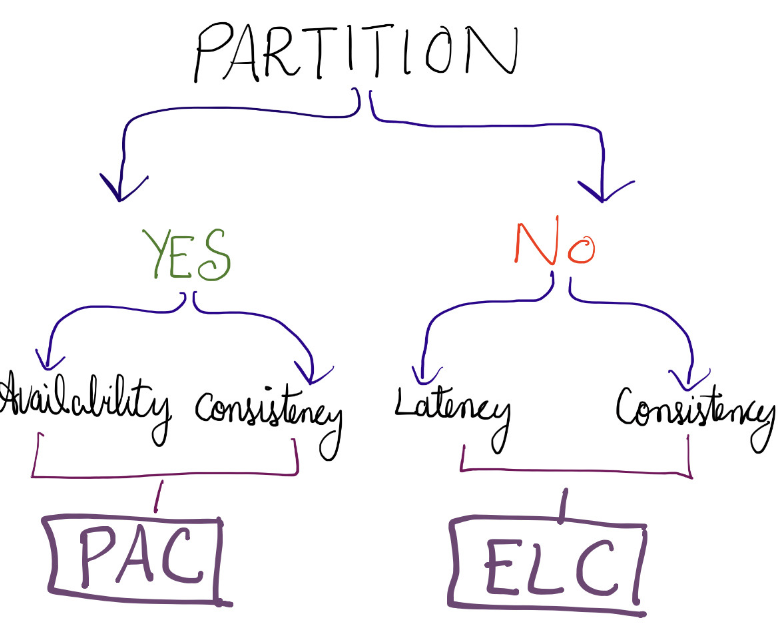 PARTITION
YES No
Availability Consistency Latency Consistency
PAC ELC